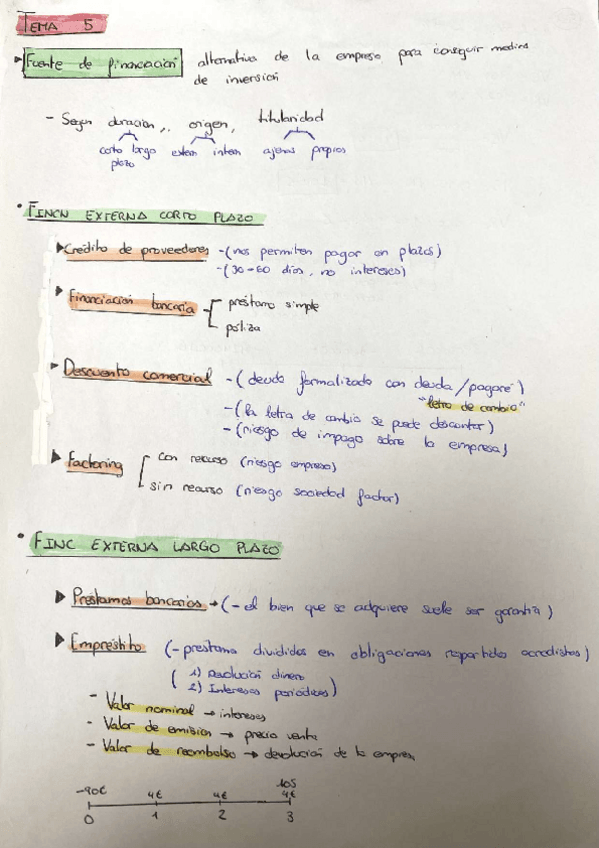 TEMA 5
Fuente de financiación alternativa de la empresa para conseguir medios
de inversión
- Según duración, origen, titularidad
corto largo extern intern ajenos propios
plazo
• FINCN EXTERNA CORTO PLAZO
Crédito de proveedores - (nos permiten pagar en plazos)
- (30-60 días, no intereses)
Financiación bancaria préstamo simple
póliza
Descuento comercial - (deuda formalizada con deuda/pagaré)
"letra de cambio"
- (la letra de cambio se puede descontar)
- (riesgo de impago sobre la empresa)
Factoring con recurso (riesgo empresa)
sin recurso (riesgo sociedad factor)
• FINC EXTERNA LARGO PLAZO
Préstamos bancarios → (- el bien que se adquiere suele ser garantía)
Empréstito (- prestamo divididos en obligaciones repartidos acredistas)
( 1) Devolución dinero
2) Intereses periódicos)
- Valor nominal → intereses
- Valor de emisión → precio venta
- Valor de reembolso → devolución de la empresa
105
-90€ 4€ 4€ 4€
0 1 2 3